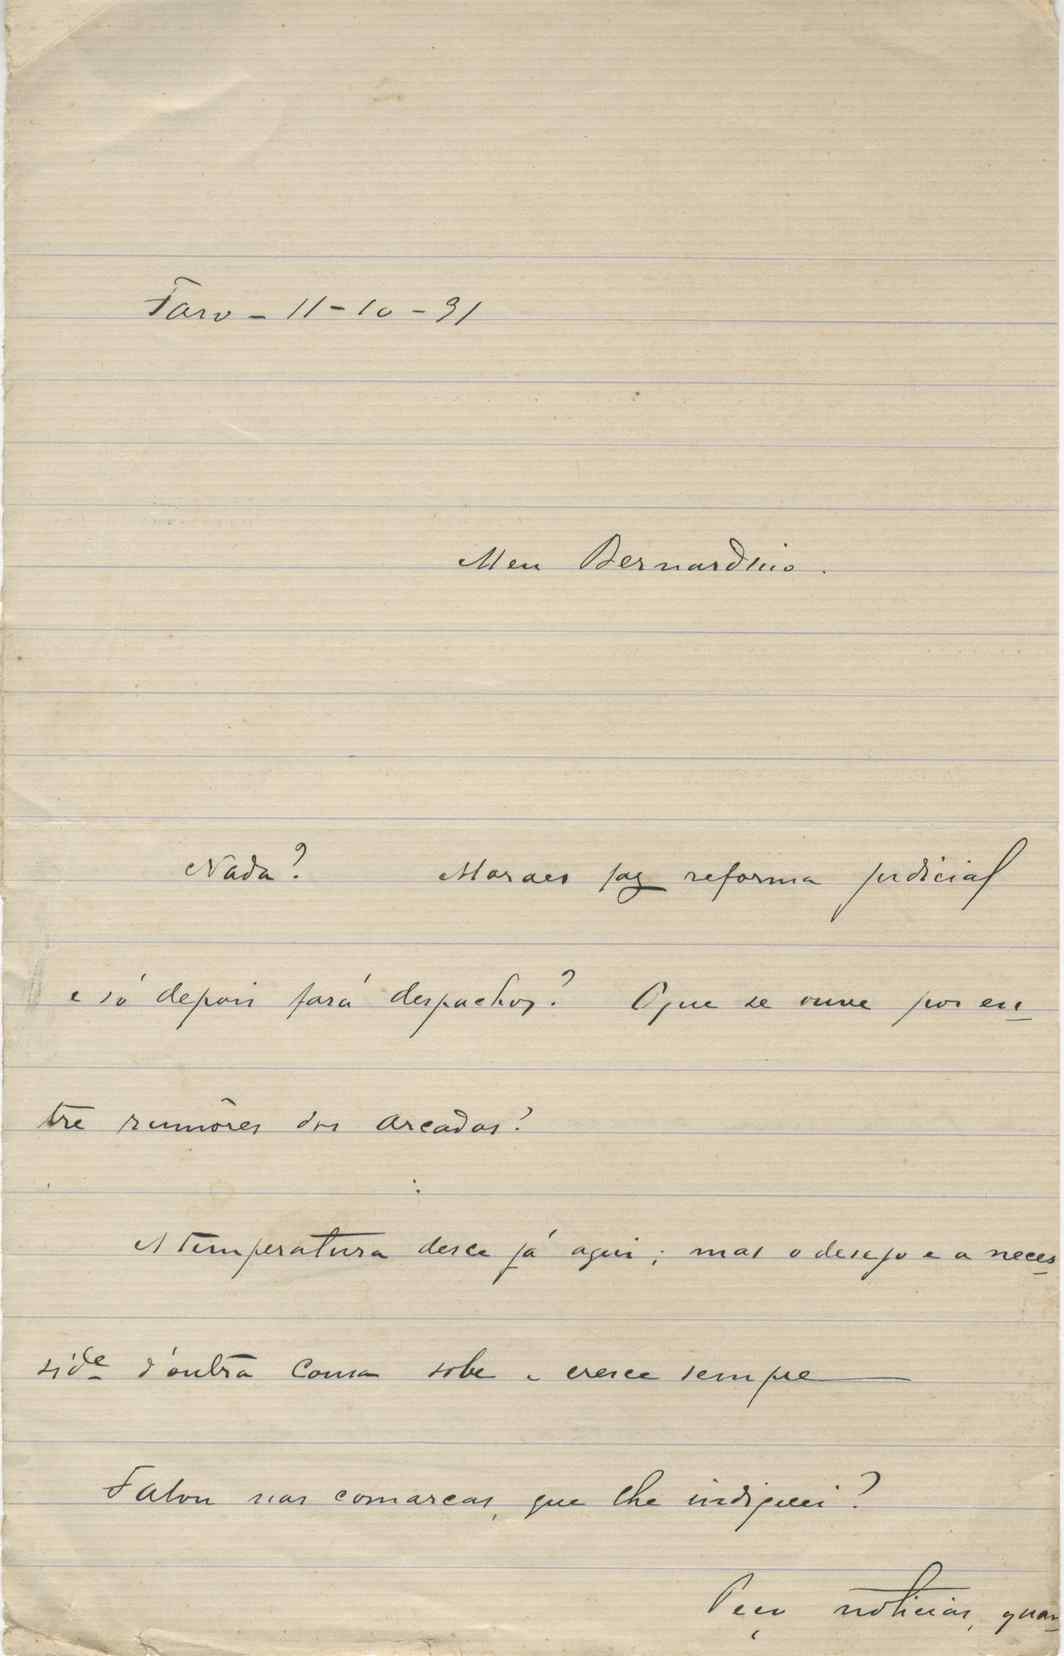 Faro - 11-10-91
Meu Bernardino.
Nada? Moraes faz reforma judicial
e só depois fará despachos? O que se ouve por en-
tre rumôres das arcadas?
A temperatura desce já aqui; mas o desejo e a neces-
sid.e d'outra cousa sobe e cresce sempre
Falou nas comarcas, que lhe indiquei?
Peço noticias, quan-